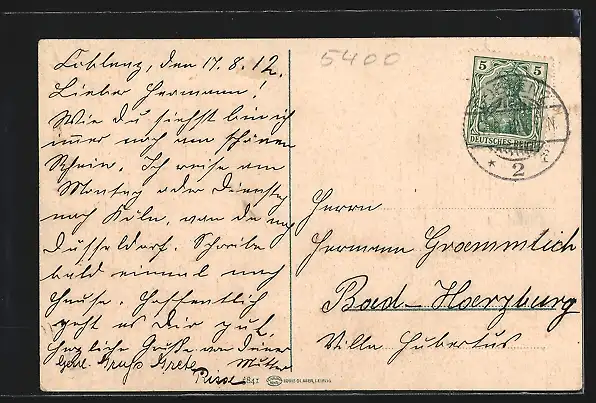 Coblenz, den 17.8.12.
Lieber Hermann!
Wie du siehst bin ich
immer noch am schönen
Rhein. Ich reise am
Montag oder Dienstag
nach Köln, von da nach
Düsseldorf. Schreibe
bald einmal nach
Hause. Hoffentlich
geht es Dir gut.
Herzliche Grüße von Deiner
Mutter
Herzl. Gruß Grete
5400
5 5
DEUTSCHES REICH
2
Herrn
Hermann Grammlich
Bad-Harzburg
Villa Hubertus